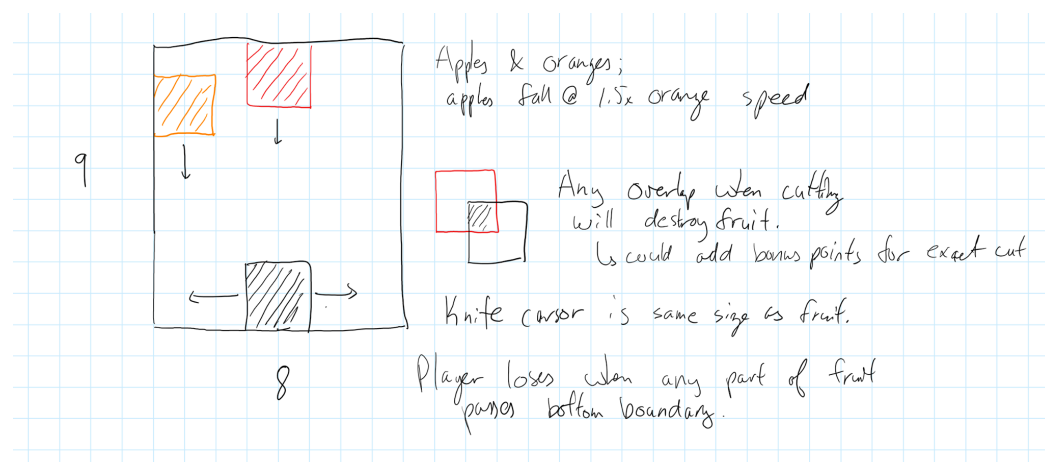 Apples & oranges;
apples fall @ 1.5x orange speed
9
Any overlap when cutting
will destroy fruit.
↳ could add bonus points for exact cut
Knife cursor is same size as fruit.
8
Player loses when any part of fruit
passes bottom boundary.